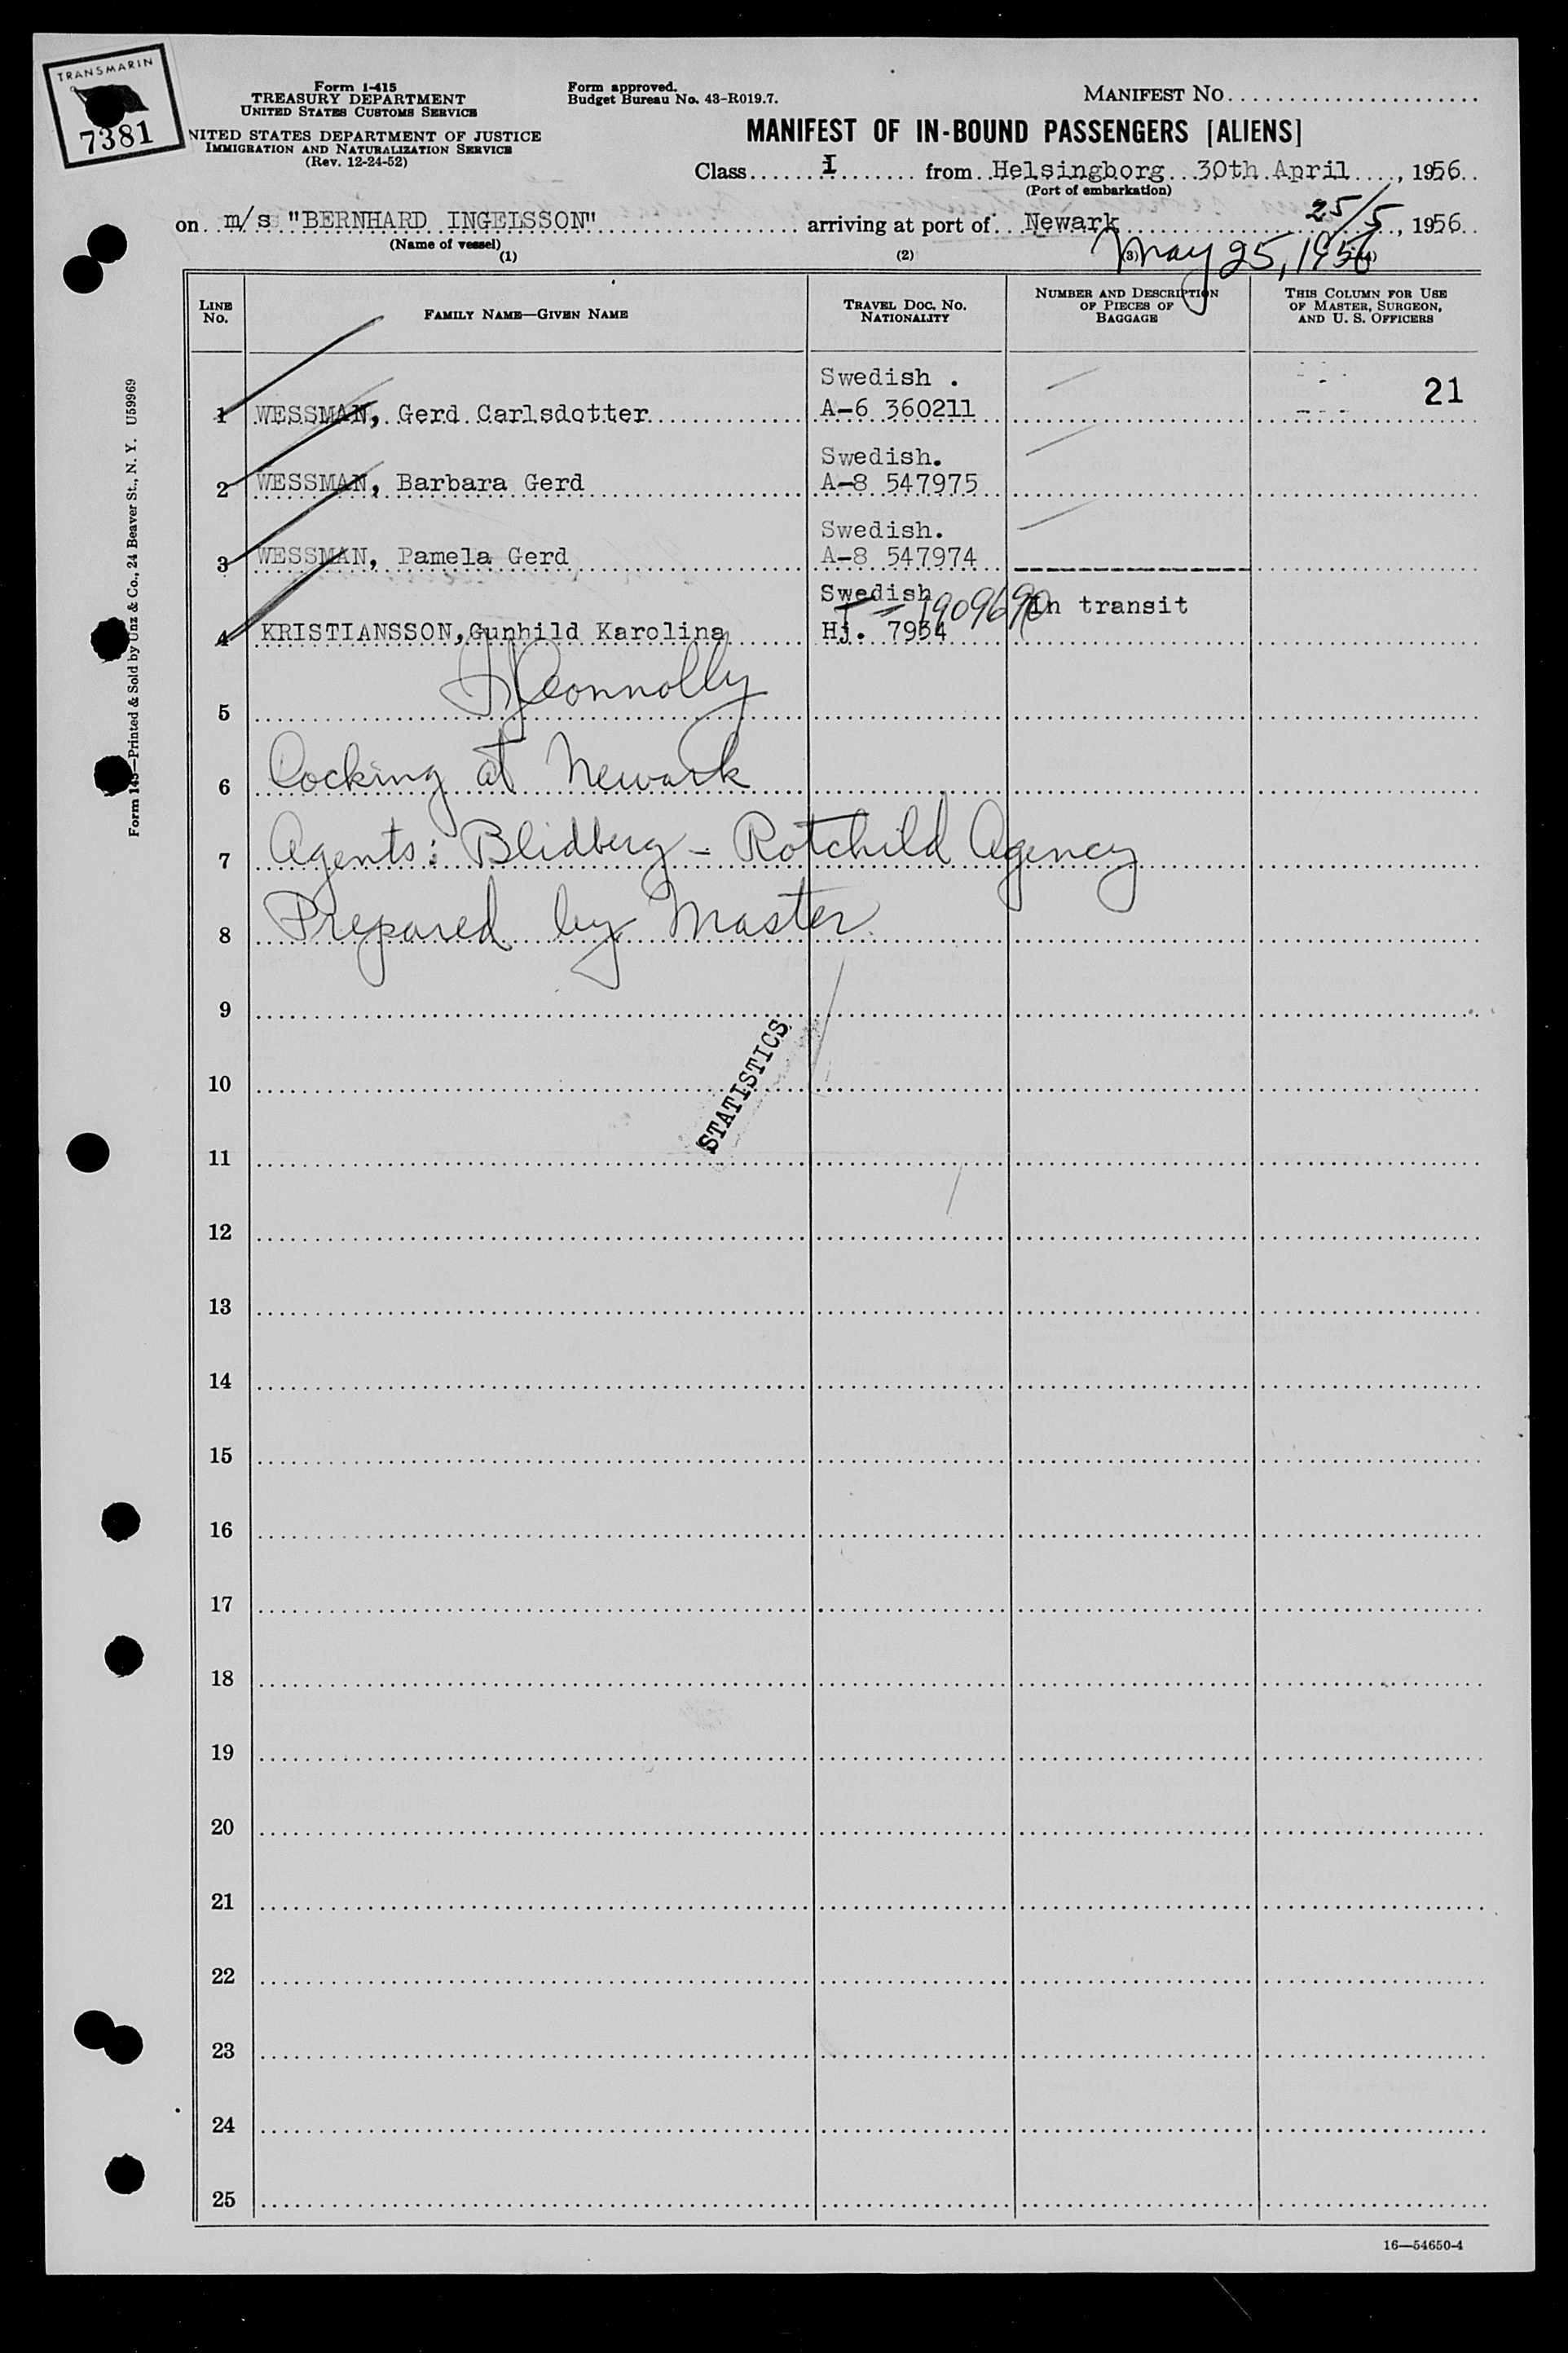 TRANSMARIN
7381
Form I-415
TREASURY DEPARTMENT
UNITED STATES CUSTOMS SERVICE
NITED STATES DEPARTMENT OF JUSTICE
IMMIGRATION AND NATURALIZATION SERVICE
(Rev. 12-24-52)
Form approved.
Budget Bureau No. 43-R019.7.
MANIFEST NO
MANIFEST OF IN-BOUND PASSENGERS [ALIENS]
Class I from Helsingborg 30th April, 1956
(Port of embarkation)
on m/s "BERNHARD INGELSSON" arriving at port of Newark 25/5, 1956
(Name of vessel)
May 25, 1956
(1) (2) (3) (4)
LINE NO. FAMILY NAME—GIVEN NAME TRAVEL DOC. NO. NATIONALITY NUMBER AND DESCRIPTION OF PIECES OF BAGGAGE THIS COLUMN FOR USE OF MASTER, SURGEON, AND U. S. OFFICERS
Swedish . 21
1 WESSMAN, Gerd Carlsdotter A-6 360211
Swedish.
2 WESSMAN, Barbara Gerd A-8 547975
Swedish.
3 WESSMAN, Pamela Gerd A-8 547974
Swedish 1909690 in transit
4 KRISTIANSSON,Gunhild Karolina Hj. 7954
Connolly
5
6 Docking at Newark
7 Agents: Blidberg - Rotchild Agency
8 Prepared by Master
9
10
STATISTICS
11
12
13
14
15
16
17
18
19
20
21
22
23
24
25
16—54650-4
Form 145—Printed & Sold by Unz & Co., 24 Beaver St., N. Y. U59969